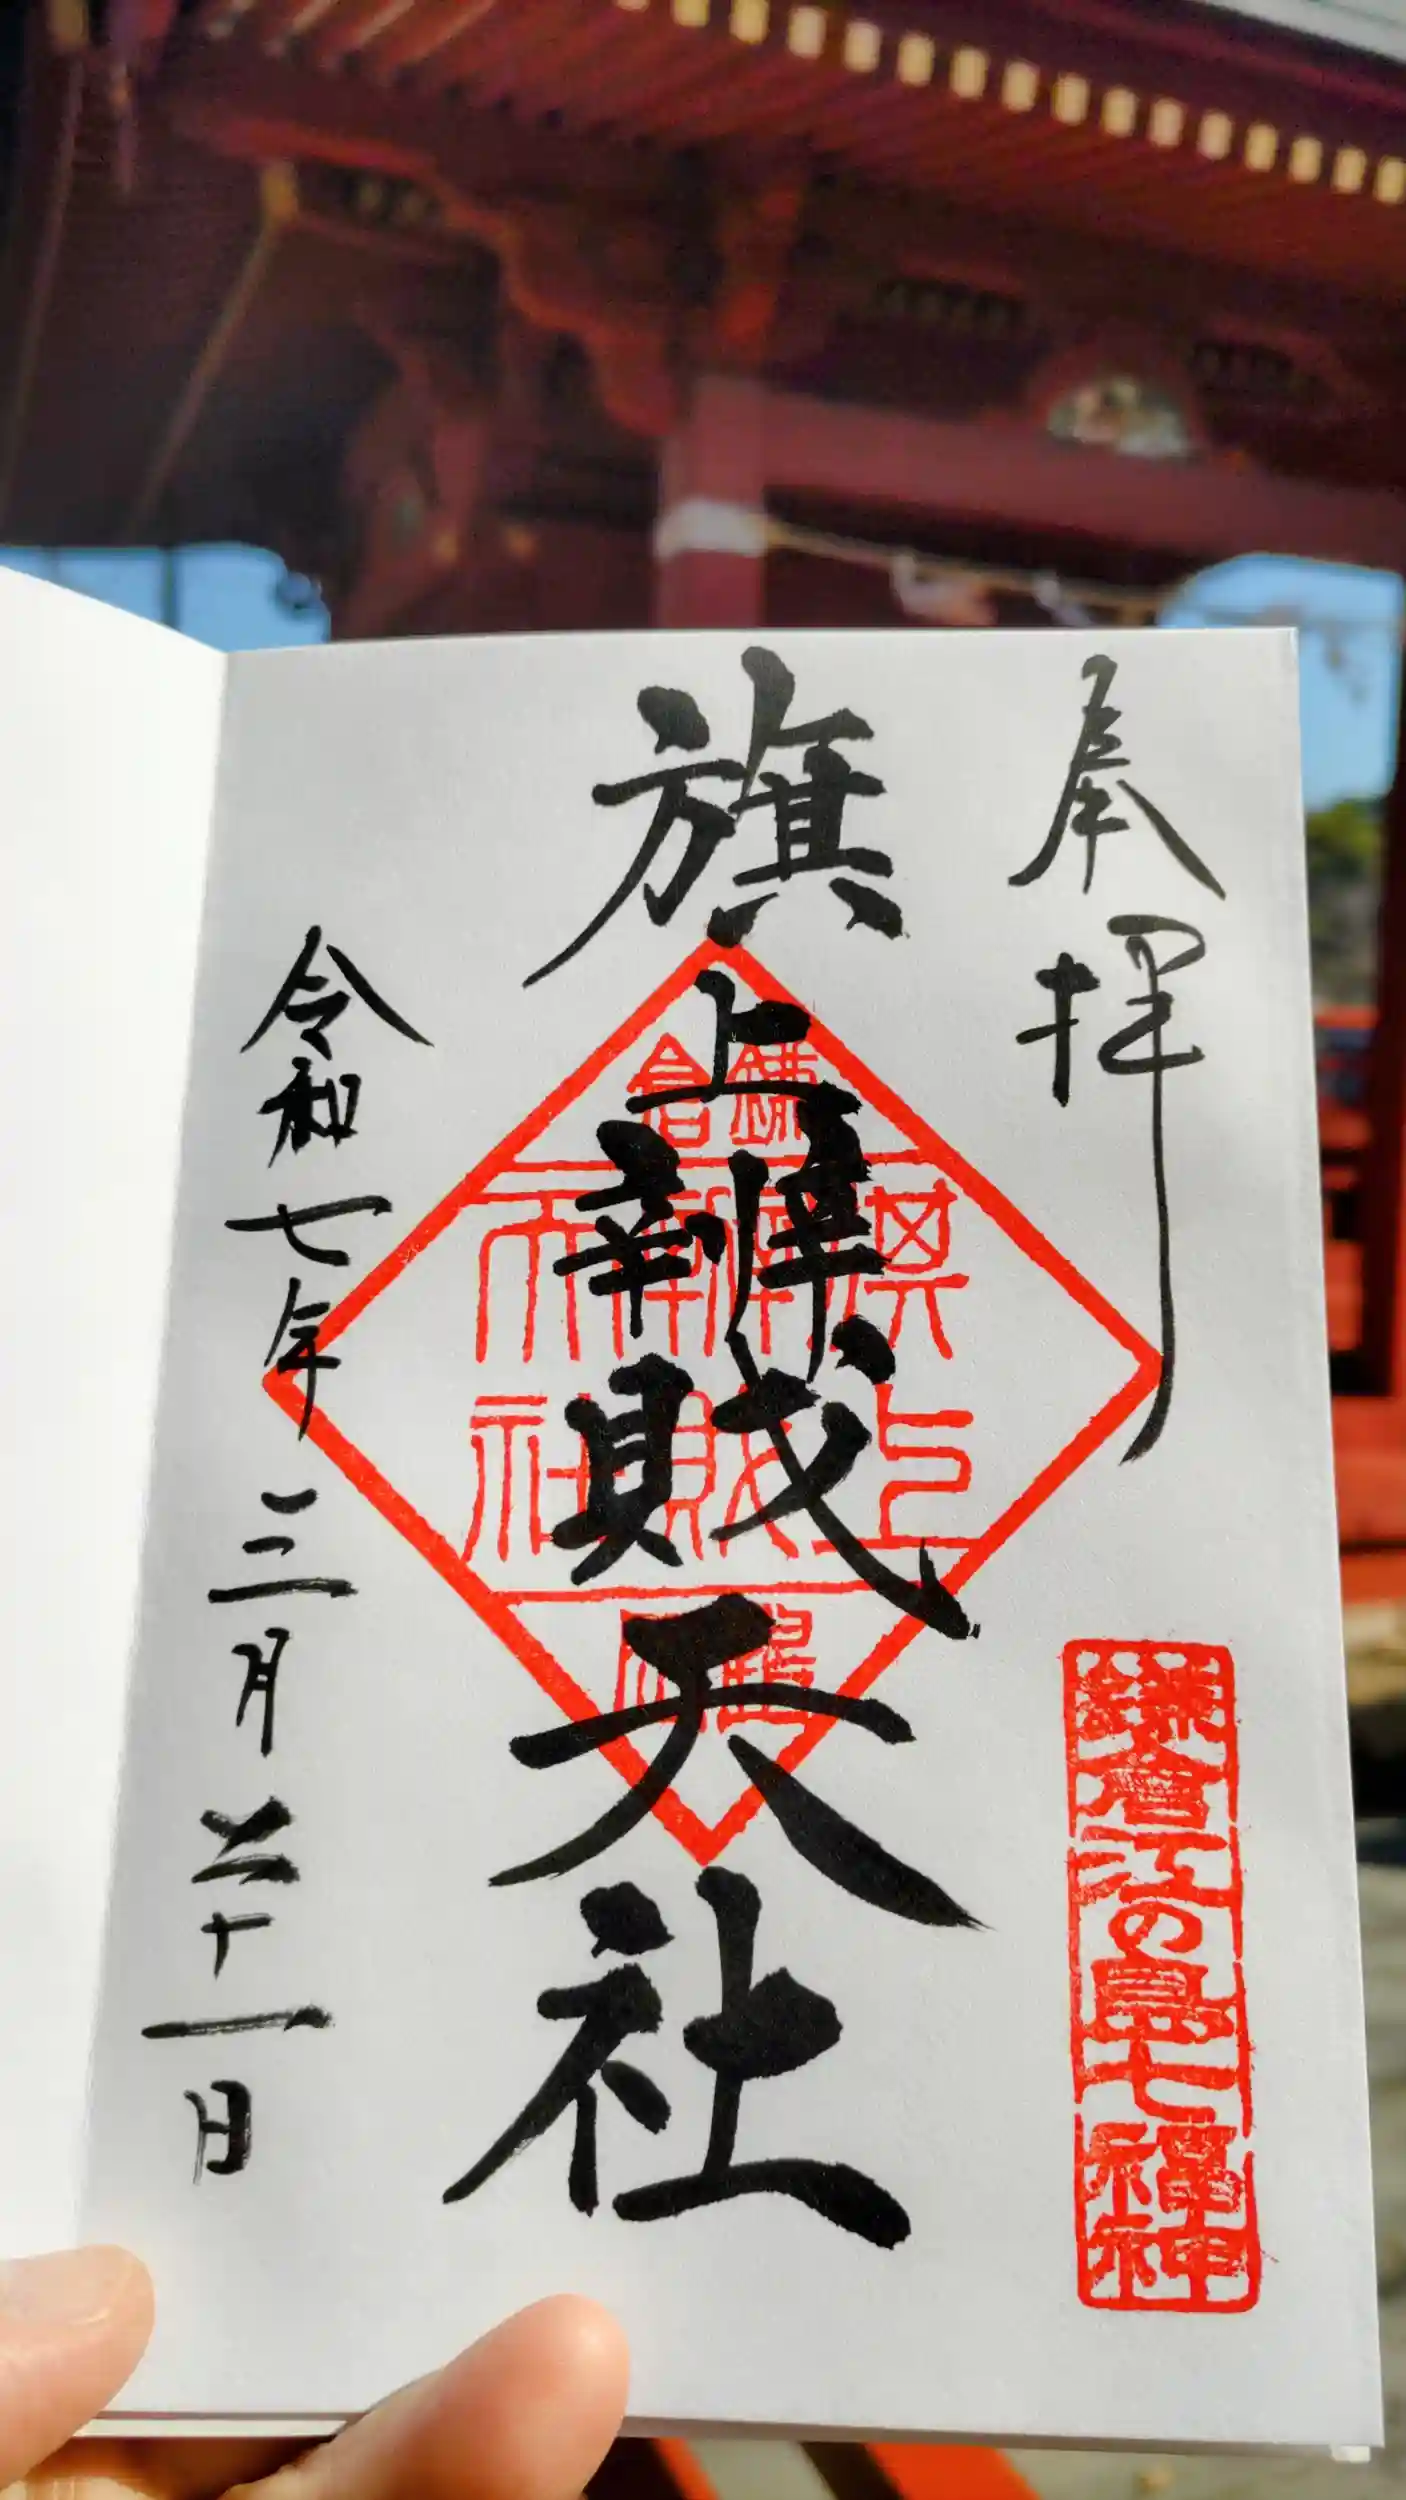 奉拝
鎌倉江の島七福神
旗上辨財天社
鎌倉
旗上
辨財
天社
鶴岡
令和七年三月二十一日